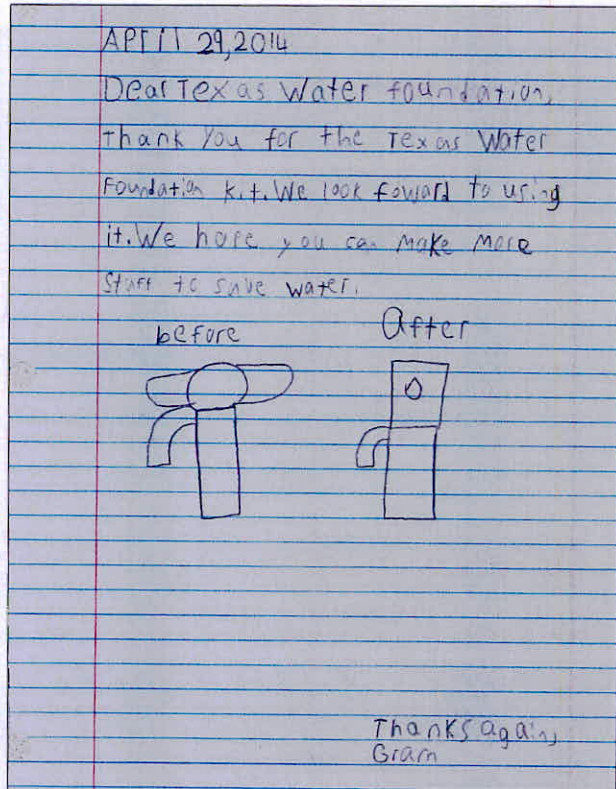 APril 29,2014
Dear Texas Water foundation,
Thank You for the Texas Water
Foundation Kit. We look foward to using
it. We hope you can make more
stuff to save water.
before After
Thanks again,
Gram